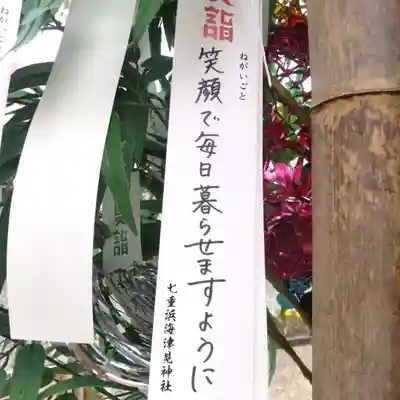 詣
ねがいごと
笑顔で毎日暮らせますように
七重浜海津見神社
ねがいごと
詣